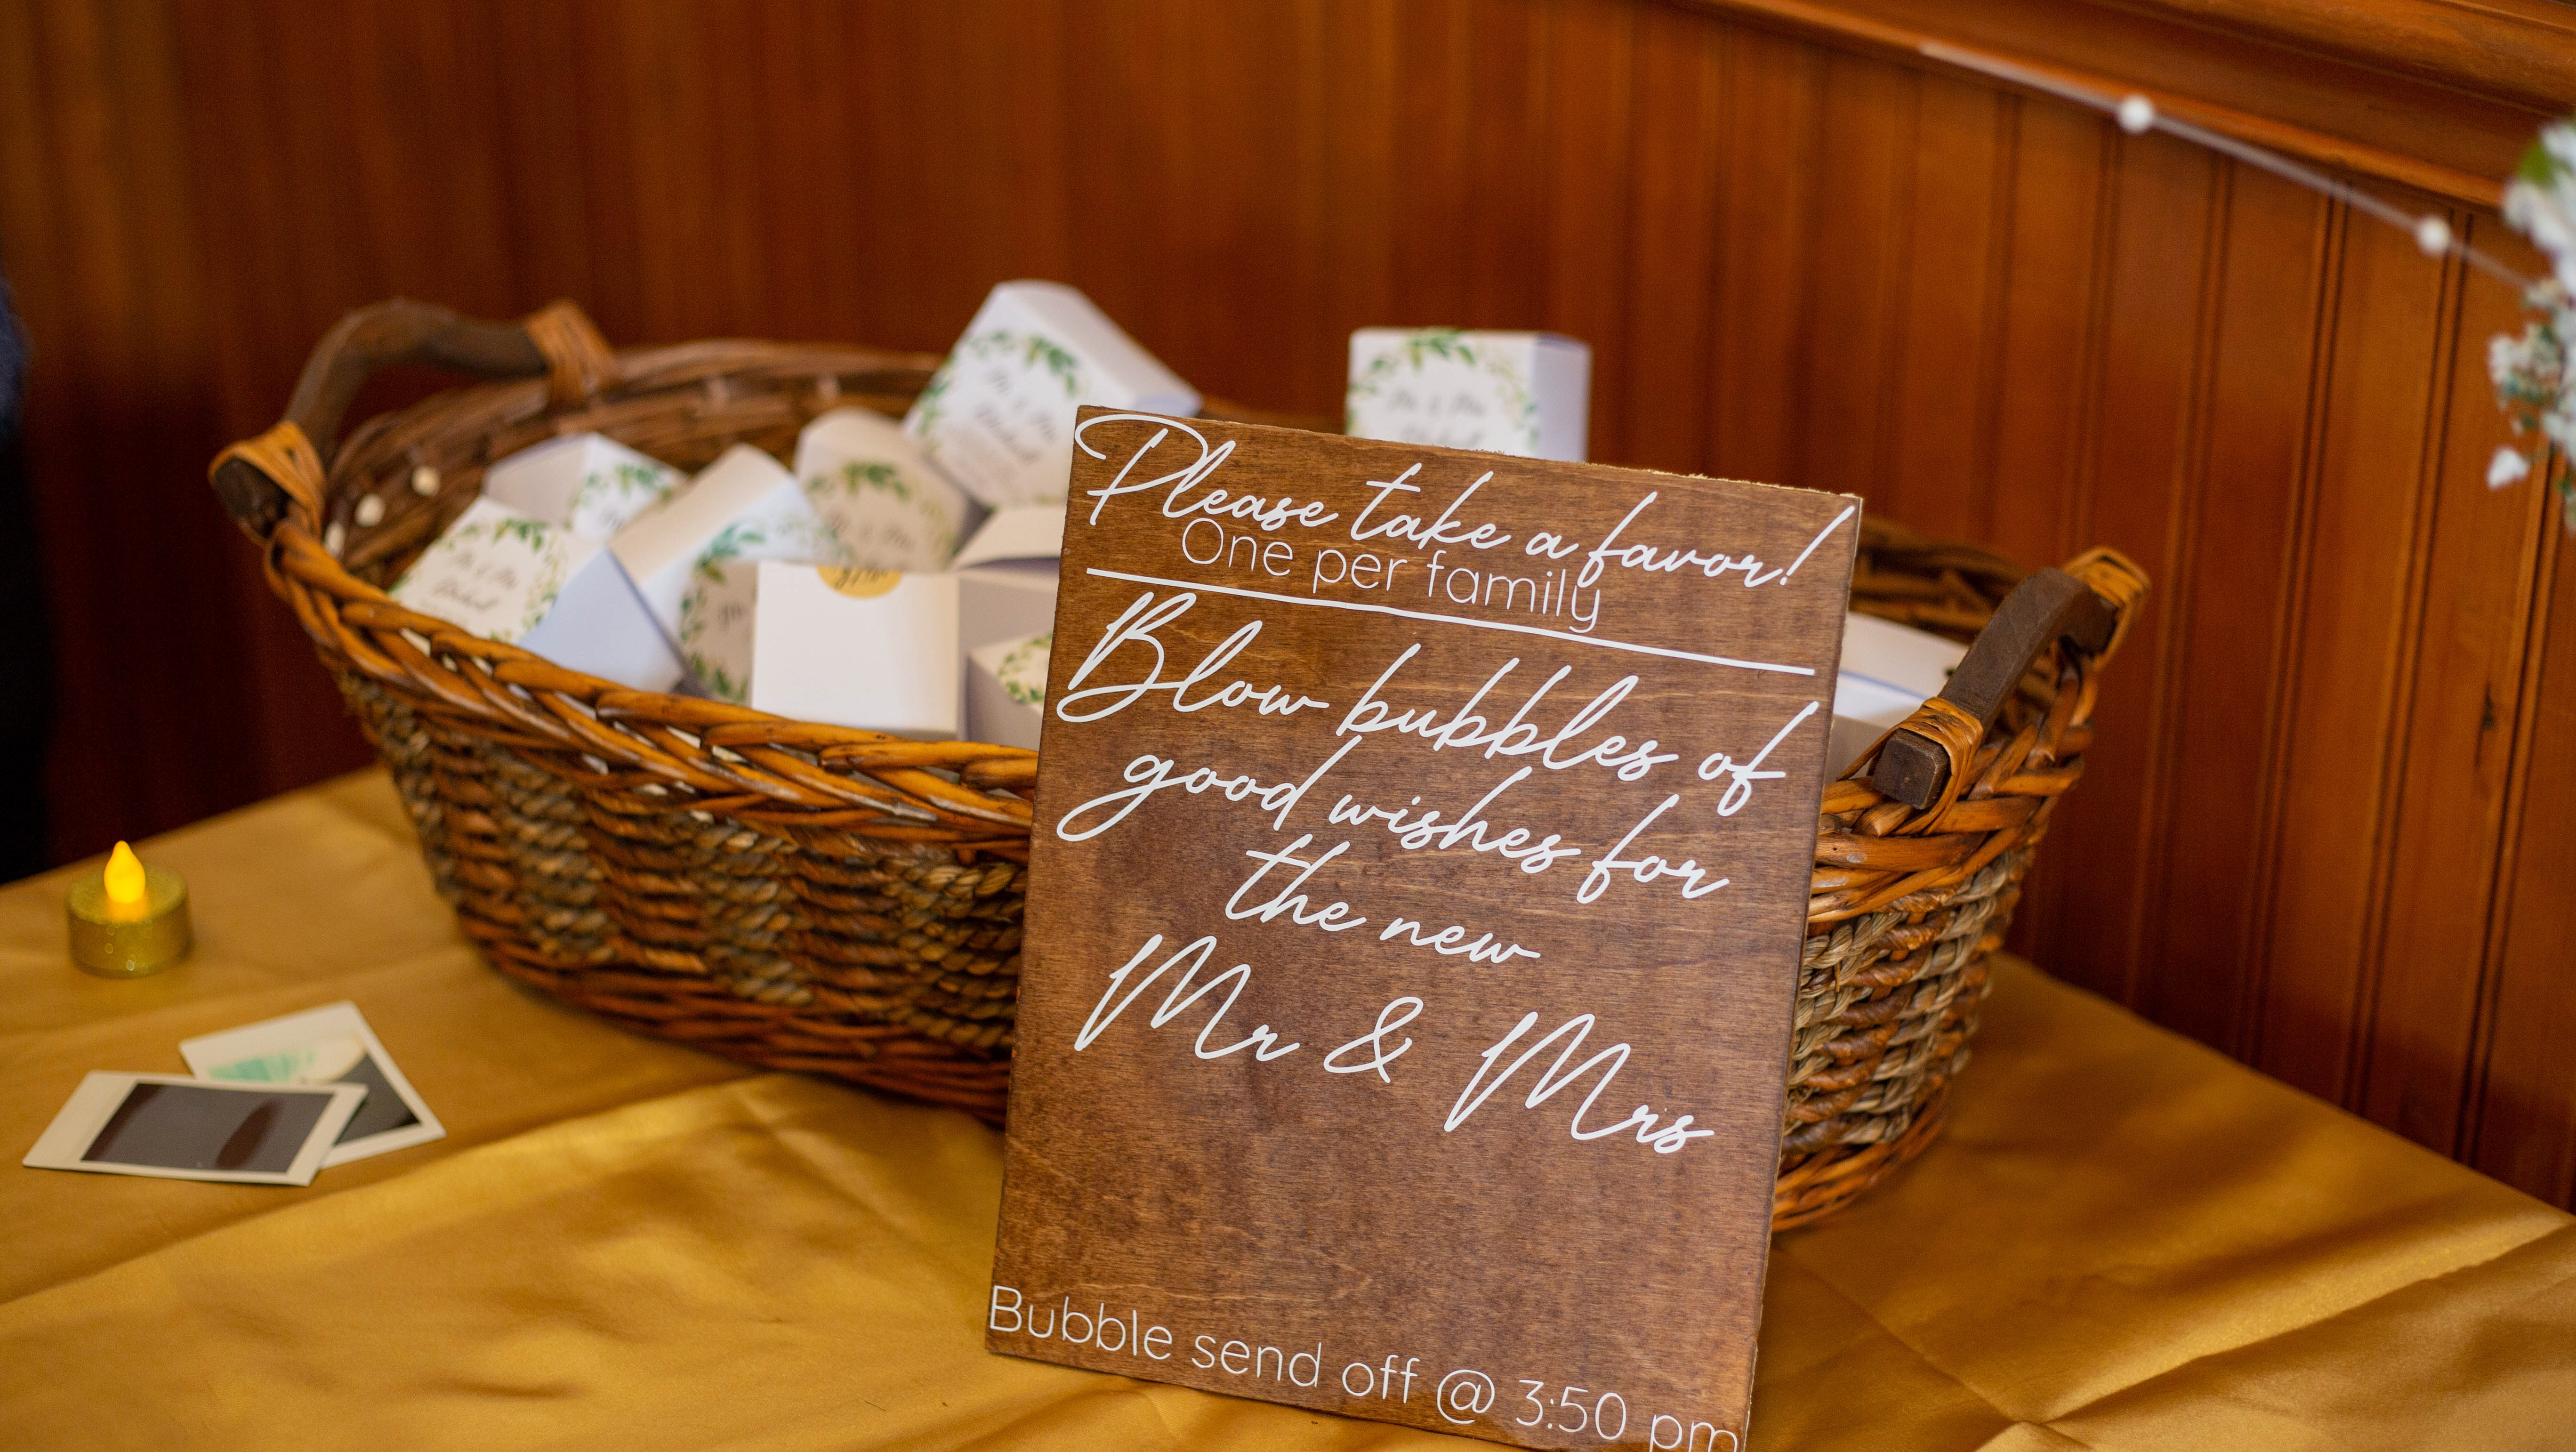 Please take a favor!
One per family
Blow bubbles of
good wishes for
the new
Mr & Mrs
Bubble send off @ 3:50 pm